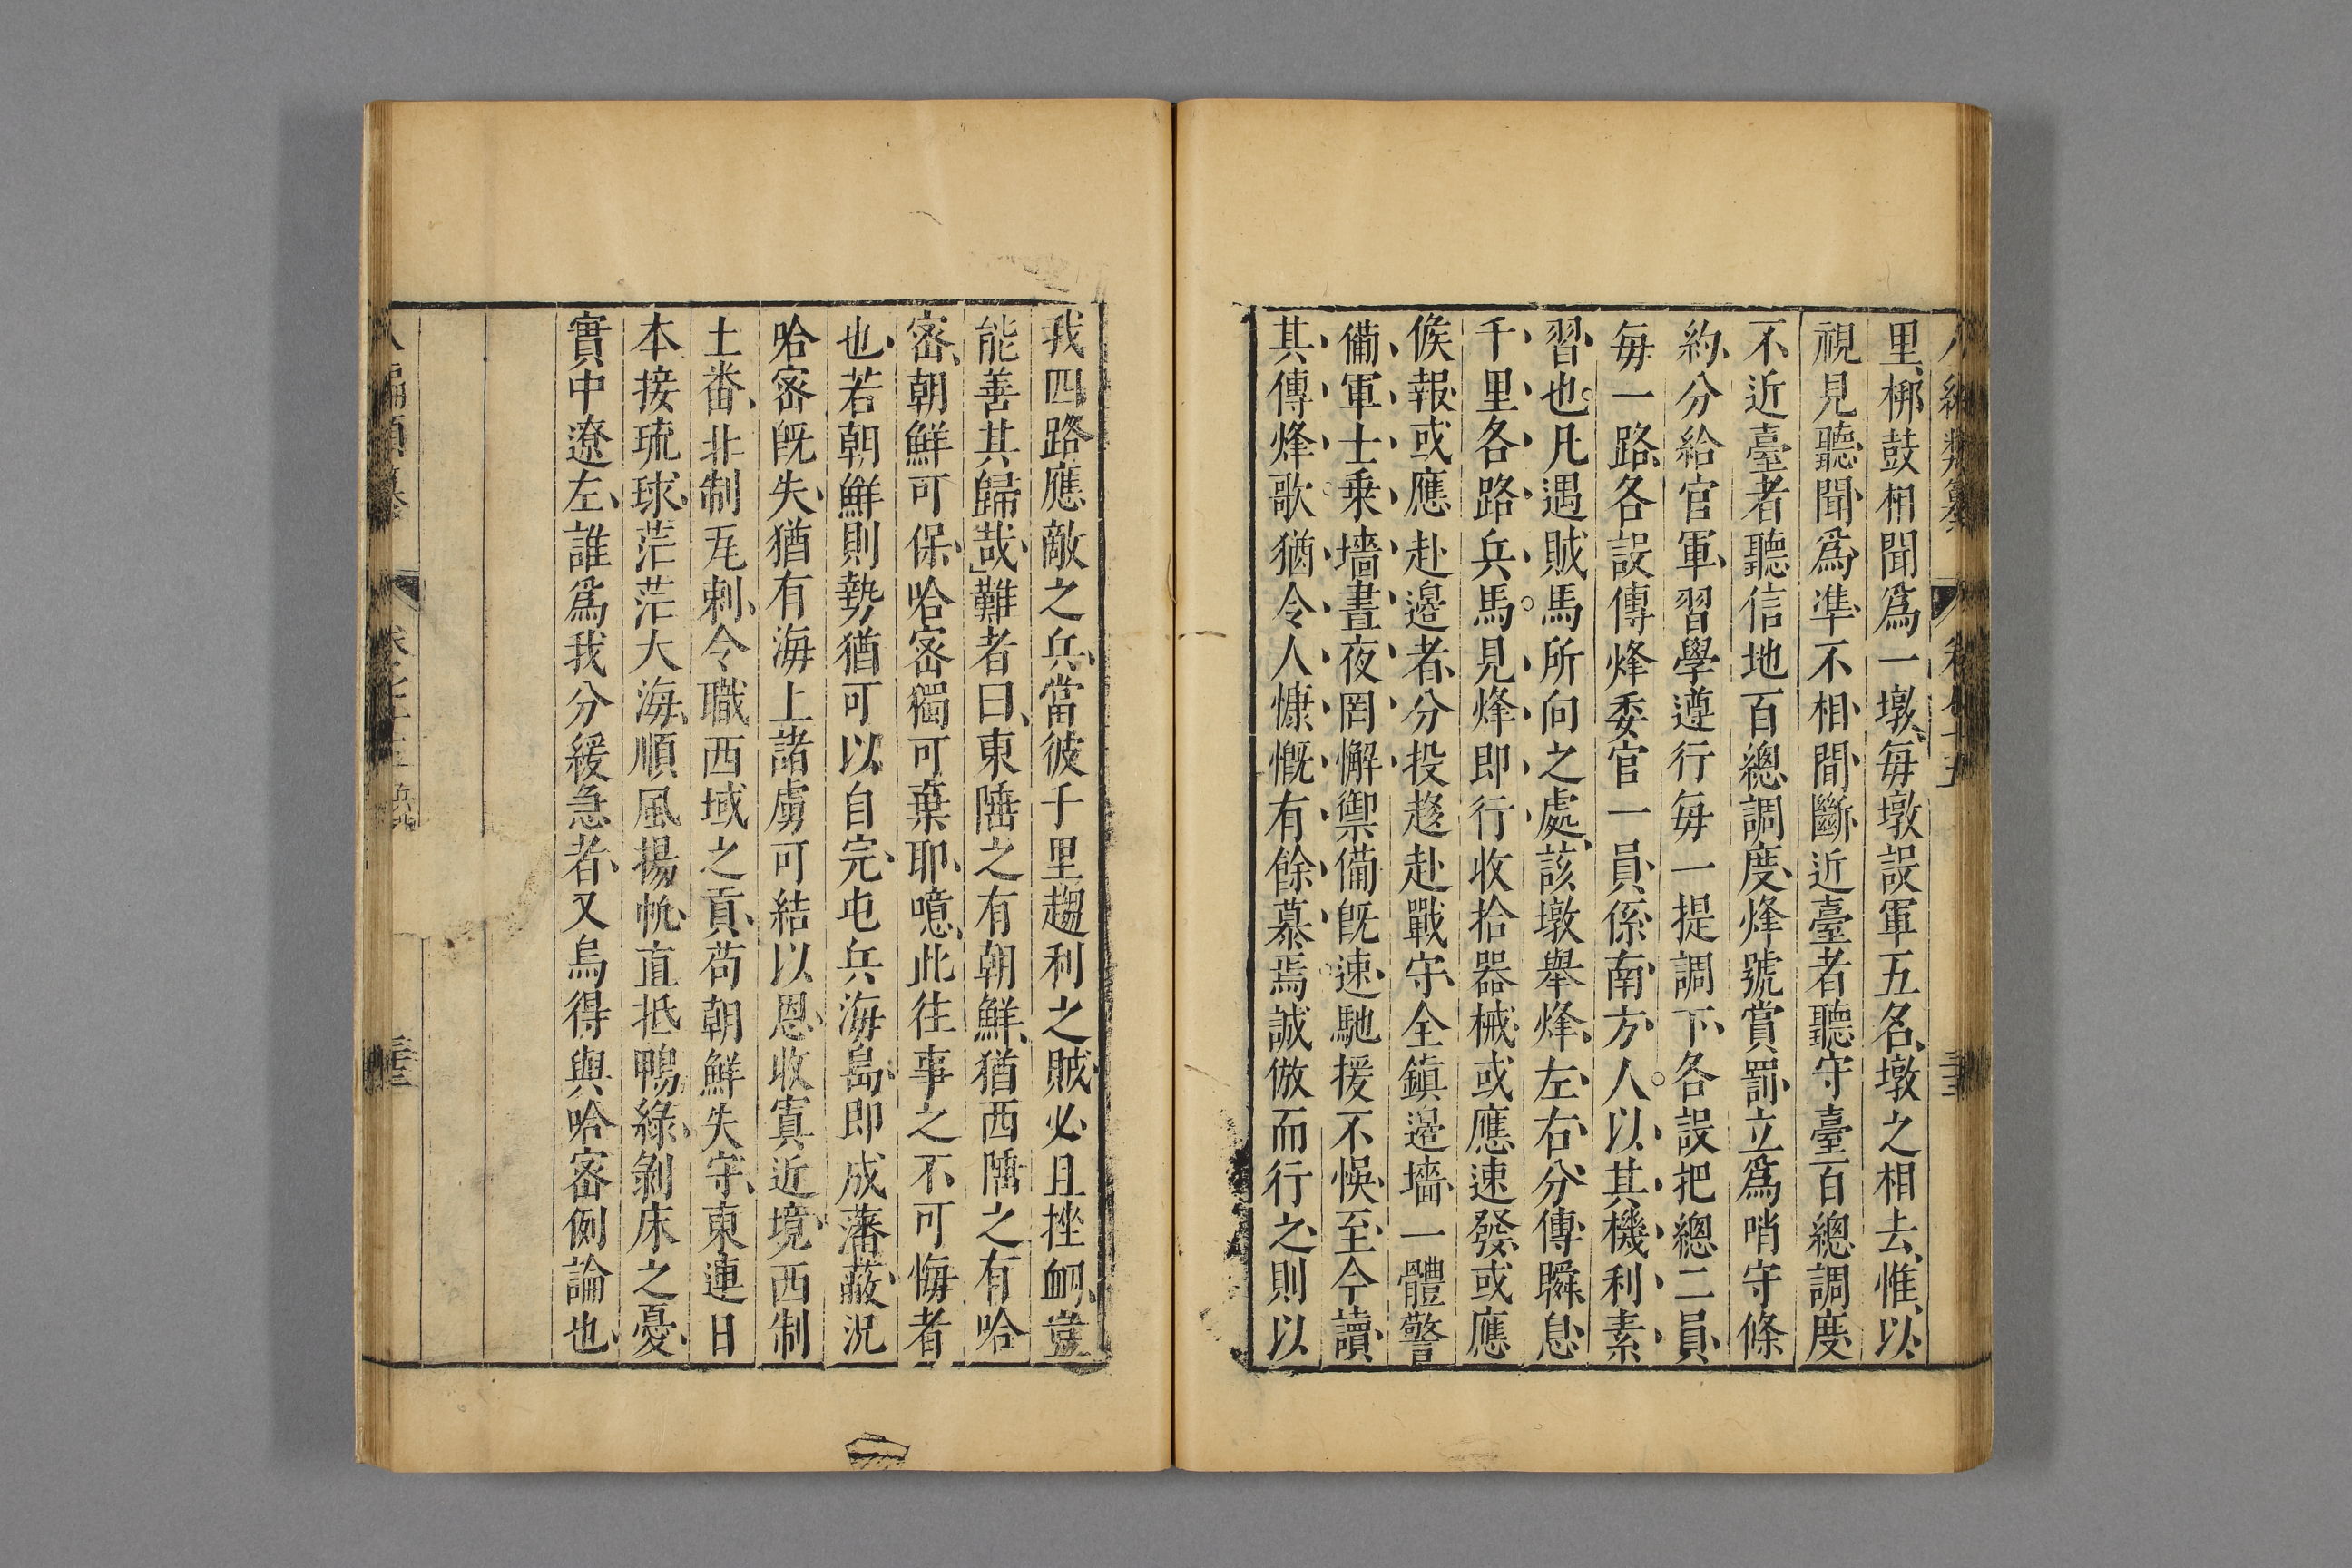 里梆鼓相聞爲一墩每墩設軍五名墩之相去惟以
視見聽聞爲準不相間斷近臺者聽守臺百總調度
不近臺者聽信地百總調度烽號賞罰立爲哨守條
約分給官軍習學遵行每一提調下各設把總二員
每一路各設傳烽委官一員係南方人以其機利素
習也凡遇賊馬所向之處該墩舉烽左右分傳瞬息
千里各路兵馬見烽即行收拾器械或應速發或應
候報或應赴邉者分投趂赴戰守全鎮邉墻一體警
備軍士乗墻晝夜罔懈禦備旣速馳援不悞至今讀
其傳烽歌猶令人慷慨有餘慕焉誠倣而行之則以
我四路應敵之兵當彼千里趨利之賊必且挫衂豈
能善其歸哉難者曰東陲之有朝鮮猶西陲之有哈
宻朝鮮可保哈宻獨可棄耶噫此往事之不可悔者
也若朝鮮則勢猶可以自完屯兵海島即成藩蔽況
哈宻旣失猶有海上諸虜可結以恩收寘近境西制
土番北制瓦剌令職西域之貢苟朝鮮失守東連日
本接琉球茫茫大海順風揚帆直抵鴨綠剝床之憂
實中遼左誰爲我分緩急者又烏得與哈宻例論也